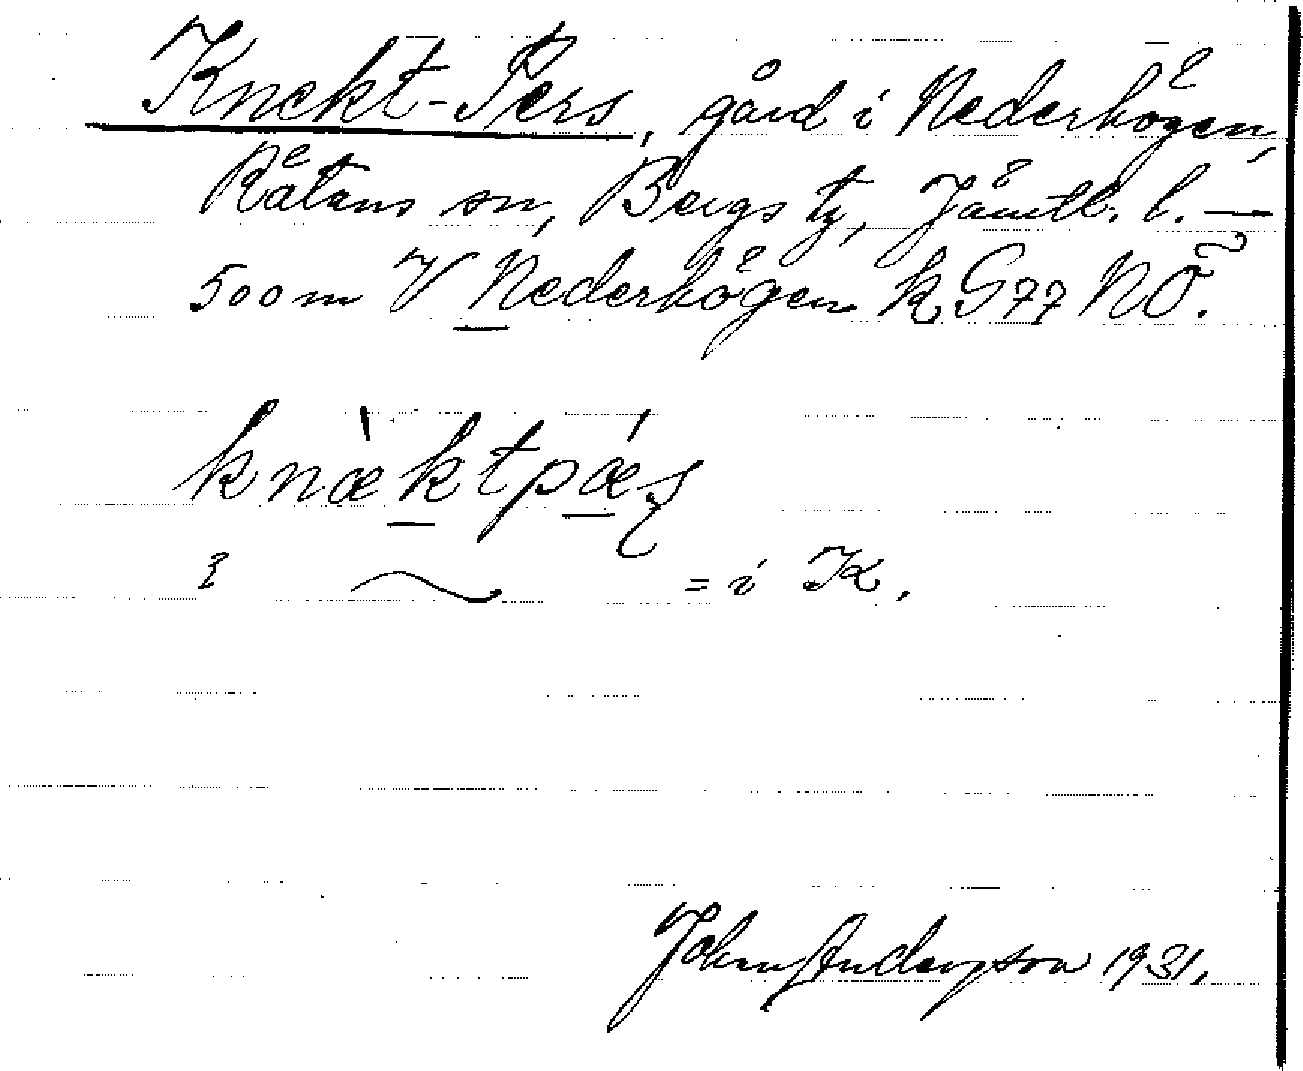 Knekt-Pers, gård i Nederhögen,
Rätans sn, Bergs tg, Jämtl. l. —
500 m V Nederhögen k. G77 NÖ.
knæ̀ktpǽʂ
i ~ = i K.
John Anderson 1931.